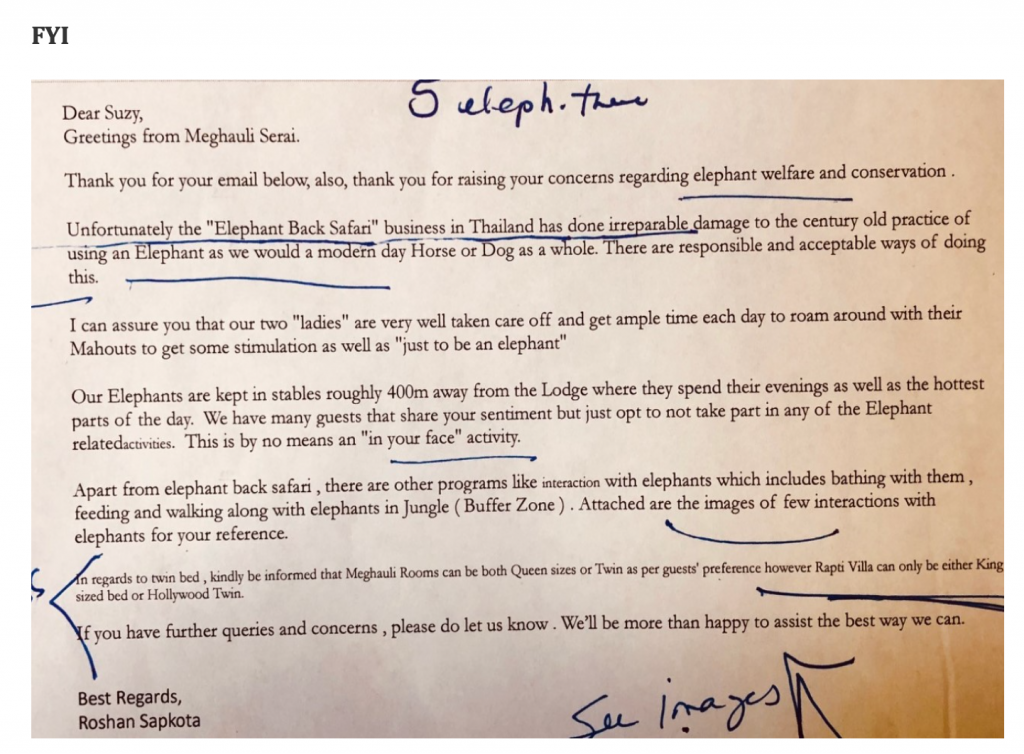 FYI
5 eleph. there
Dear Suzy,
Greetings from Meghauli Serai.
Thank you for your email below, also, thank you for raising your concerns regarding elephant welfare and conservation .
Unfortunately the "Elephant Back Safari" business in Thailand has done irreparable damage to the century old practice of
using an Elephant as we would a modern day Horse or Dog as a whole. There are responsible and acceptable ways of doing
this.
I can assure you that our two "ladies" are very well taken care off and get ample time each day to roam around with their
Mahouts to get some stimulation as well as "just to be an elephant"
Our Elephants are kept in stables roughly 400m away from the Lodge where they spend their evenings as well as the hottest
parts of the day. We have many guests that share your sentiment but just opt to not take part in any of the Elephant
relatedactivities. This is by no means an "in your face" activity.
Apart from elephant back safari , there are other programs like interaction with elephants which includes bathing with them ,
feeding and walking along with elephants in Jungle ( Buffer Zone ) . Attached are the images of few interactions with
elephants for your reference.
In regards to twin bed , kindly be informed that Meghauli Rooms can be both Queen sizes or Twin as per guests' preference however Rapti Villa can only be either King
sized bed or Hollywood Twin.
If you have further queries and concerns , please do let us know . We'll be more than happy to assist the best way we can.
Best Regards,
Roshan Sapkota
See images